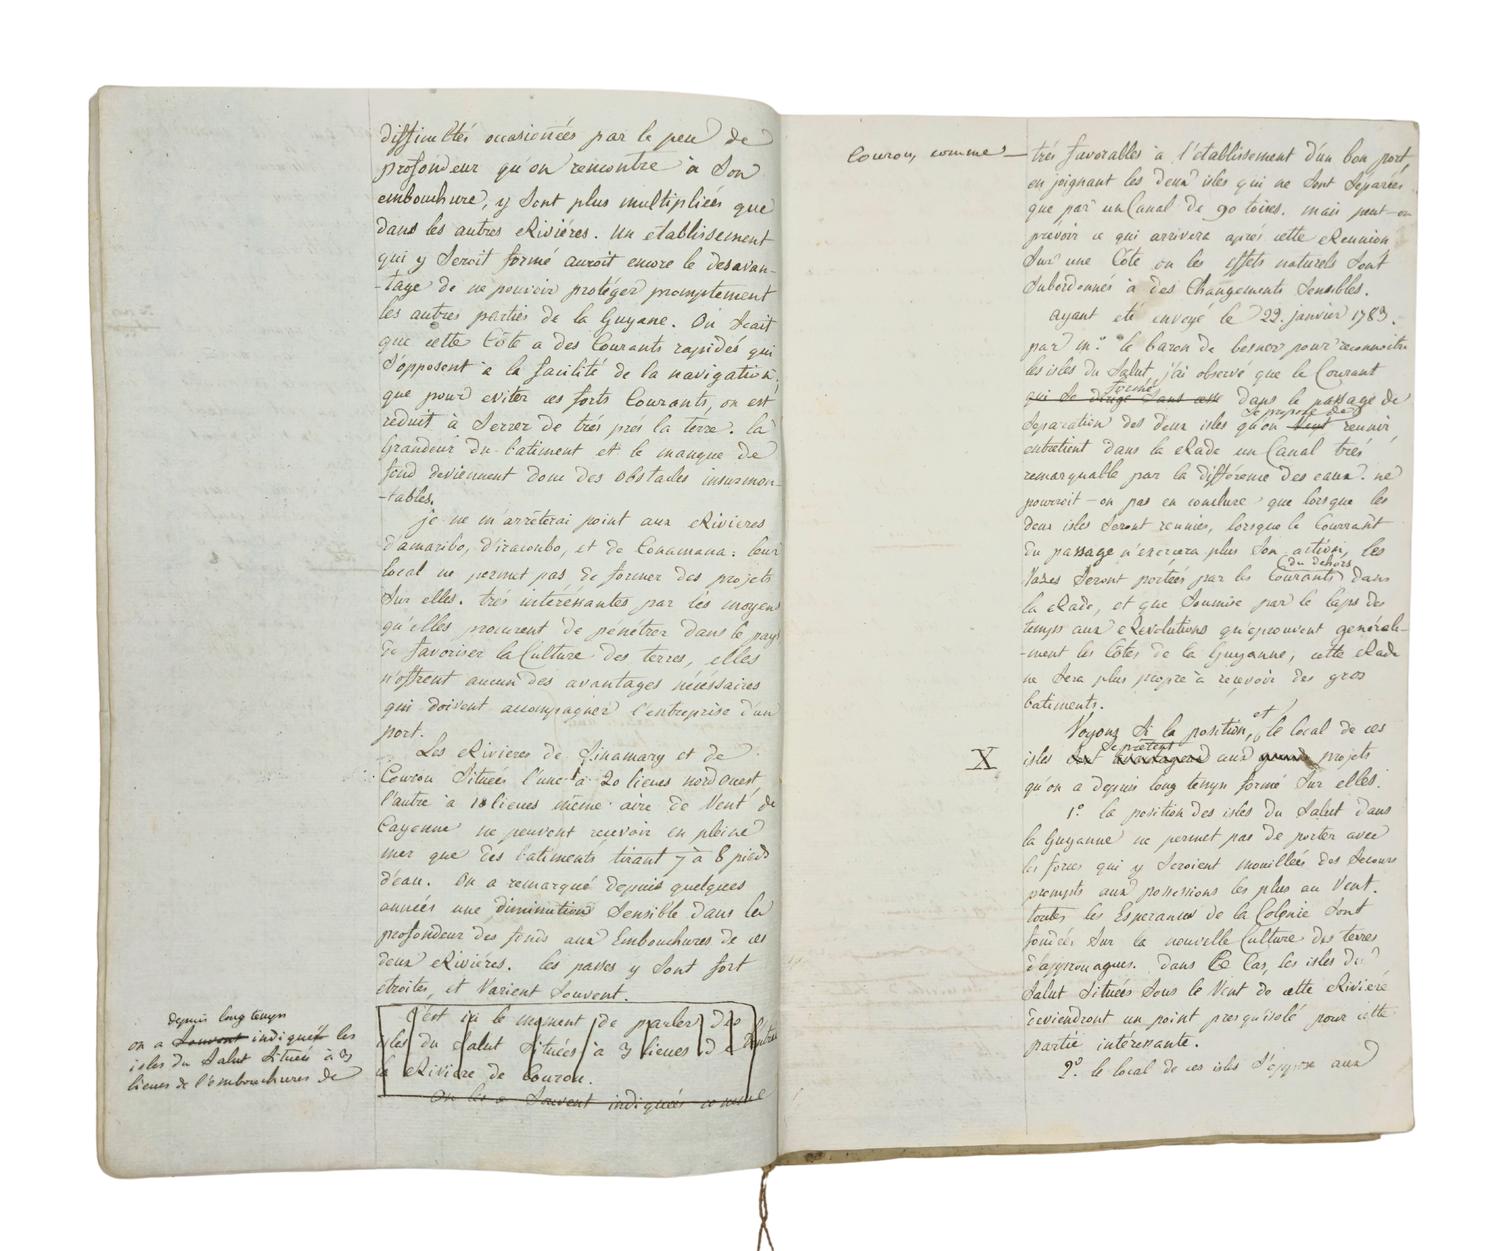 difficultés occasionées par le peu de
profondeur qu'on rencontre à Son
embouchure, y Sont plus multipliées que
dans les autres Riviéres. un etablissement
qui y Seroit formé auroit encore le desavan-
-tage de ne pouvoir protéger promptement
les autres parties de la Guyane. On Scait
que cette Côte a des Courants rapides qui
S'opposent a la facilité de la navigation,
que pour eviter ces forts Courants, on est
reduit à Serrer de trés pres la terre. la
grandeur du batiment et le manque de
fond deviennent donc des obstacles insurmon-
-tables.
je ne m'arrêterai point aux Rivieres
d'amaribo, d'iracoubo, et de Conamana: leur
local ne permet pas de former des projets
Sur elles. trés intéréssantes par les moyens
qu'elles procurent de pénétrer dans le pays
de favoriser la Culture des terres, elles
n'offrent aucun des avantages nécéssaires
qui doivent accompagner l'entreprise d'un
port.
Les Rivieres de Sinamary et de
Courou Situées l'une à 20 lieues nord ouest,
l'autre à 10 lieues même aire de Vent de
Cayenne ne peuvent recevoir en pleine
mer que des batiments tirant 7 à 8 pieds
d'eau. On a remarqué depuis quelques
années une diminution Sensible dans les
profondeur des fonds aux Embouchures de ces
deux Riviéres. les passes y Sont fort
étroites, et Varient Souvent.
C'est ici le moment de parler des
isles du Salut Situées à 3 lieues de
la Riviere de Courou.
On les a Souvent indiquées comme
depuis long temps
on a Souvent indiqué les
isles du Salut Situées à 3
lieues de l'embouchures de
Courou, comme
trés favorables à l'etablissement d'un bon port,
en joignant les deux isles qui ne Sont Separées
que par un Canal de 90 toises. mais peut-on
prévoir ce qui arrivera aprés cette Reunion
Sur une Côte ou les effets naturels Sont
Subordonnés à des Changements Sensibles.
ayant été envoyé le 22. janvier 1783.
par m.r le baron de besner pour reconnoitre
les isles du Salut j'ai observé que le Courant
formé
qui Se dirige Sans cesse dans le passage de
Se propose de
Separation des deux isles qu'on Veut reunir
entretient dans la Rade un Canal trés
remarquable par la différence des eaux. ne
pourroit-on pas en conclure que lorsque les
deux isles Seront reunies, lorsque le Courrant
du passage n'exercera plus Son action, les
du dehors
Vases Seront portées par les Courants dans
la Rade, et que Soumise par le laps des
temps aux Revolutions qu'eprouvent générale-
-ment les Côtes de la Guyanne, cette Rade
ne Sera plus propre à recevoir des gros
batiments.
et
Voyons Si la position, le local de ces
Se prêtent
X
isles Sont avantageux aux projets
qu'on a depuis long temps formé Sur elles.
1.º la position des isles du Salut dans
la Guyanne ne permet pas de porter avec
les forces qui y Seroient mouillées des Secours
prompts aux possessions les plus au Vent.
toutes les Esperances de la Colonie Sont
fondées Sur la nouvelle Culture des terres
d'approuagues. Dans Ce Cas, les isles du
Salut Situées Sous le Vent de cette Riviere
deviendront un point presqu'isolé pour cette
partie intéressante.
2.º le local de ces isles S'oppose aux